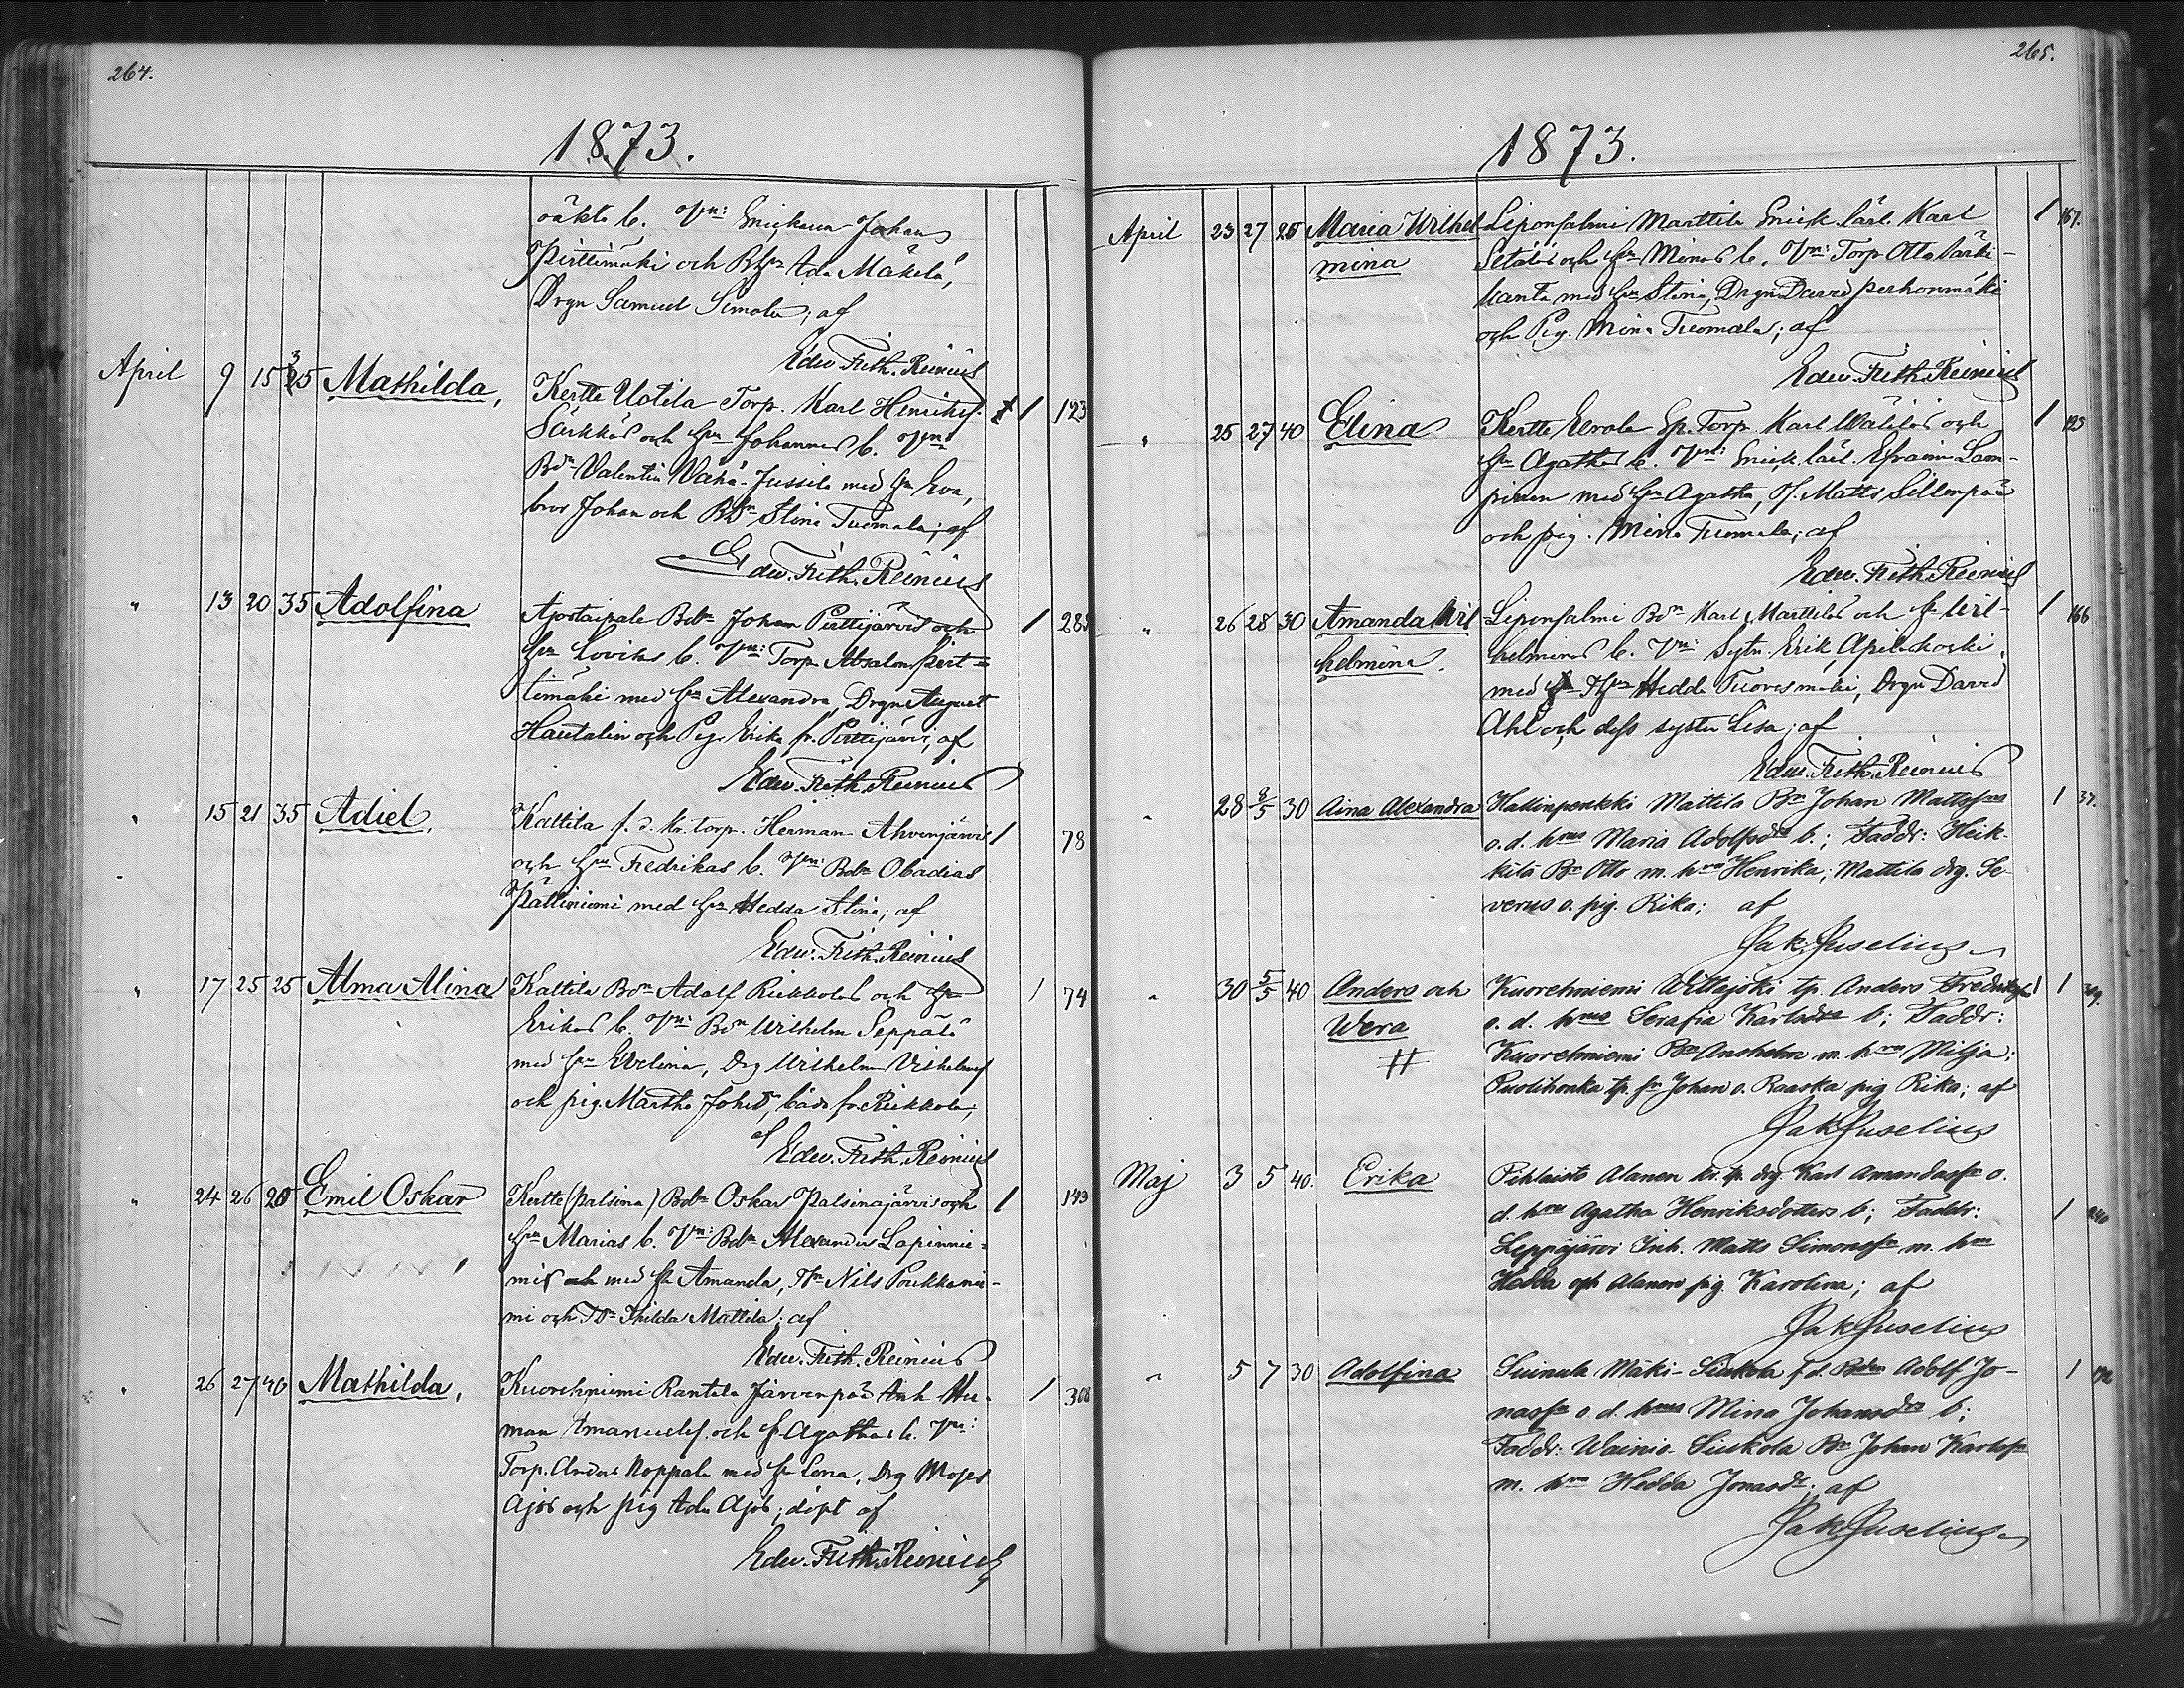 264.
1873.
b. Johan
Pirttimäki och Ada Mäkelä,
Drgn Samuel Simola; af
Edw. Frith. Reinius
April 9 15 35 Mathilda, Kertte Uotila Torp. Karl 1 123
och Johannas b.
Bdn Valentin Vähä-Jussila med hu Eva,
bror Johan och Stina Tuomala; af
Edw. Frith. Reinius
" 13 20 35 Adolfina Ajostaipale Bdn Johan Perttijärvis och 1
hu Lovisas b. Torp. Absalon Pert=
timäki med hu Alexandra, Drgn August
Hautalin och Pig. Erika fr. Perttijärvi; af
Edw. Frith. Reinius
" 15 21 35 Adiel, Kattila f. d. kr. torp. Herman Ahvenjärvis 1 78
och hu Fredrikas b. Bdn Obadias
Pälliniemi med hu Hedda Stina; af
Edw. Frith. Reinius
" 17 25 25 Alma Alina Kattila Bdn Adolf Riekkolas och hu 1 74
Erikas b. Bdn Wilhelm Seppälä
med hu Evelina, Drg Wilhelm
och pig. Martha båda fr. Riekkola;
af
Edw. Frith. Reinius
" 24 26 20 Emil Oskar Kertte (Palsina) Bdn Oskar Palsinajärvis och 1 143
hu Marias b. Bdn Alexander Lapinnie-
mis och med hu Amanda, Nils Poukkanie-
mi och Thilda Mattila; af
Edw. Frith. Reinius
" 26 27 40 Mathilda, Kuorehniemi Rantala Järvenpää Inh. Her- 1
man Emanuelsf. och hu Agathas b.
Torp. Anders Koppala med hu Lena, Drg Moses
Ajos och pig Ada Ajos; döpt af
Edw. Frith. Reinius
265.
1873.
April 23 27 20 Maria Wilhel- Liponsalmi Marttila lärl. Karl 1 167.
mina Setäläs och hu Minas b. Torp. Otto Särki-
kanta med hu Stina, Drgn David Perhonmäki
och Pig. Mina Tuomala; af
Edw. Frith. Reinius
" 25 27 40 Elina Kertte Eerola Sp. Torp. Karl Wäliläs och 1 125
hu Agathas b. lärl. Efraim Lam-
pinen med hu Agatha, Matts Sillenpää
och pig. Mina Tuomala; af
Edw. Frith. Reinius
" 26 28 30 Amanda Wil- Liponsalmi Bdn Karl Marttilas och hu Wil- 1 166
helmina. helminas b. Sytn. Erik Apilakoski
med Hedda Tuovesmäki, Drgn David
Ahl och dess syster Lisa; af
Edw. Frith. Reinius
" 28 30 Aina Alexandra Hallinpenkki Mattila Bn Johan Mattssons 1 37.
o. d. hrus Maria Adolfsdr b.; Faddr: Heik-
kilä Bn Otto m. hru Henrika; Mattila drg. Se-
verus o. pig. Rika; af
Jak Juselius
" 30 5/5 40 Anders och Kuorehniemi Wittajoki tp. Anders 1
Wera o. d. hrus Serafia Karlsdrs b; Faddr:
# Kuorehniemi Bn Anshelm m. hru Milja;
Puolihonka tp. sn Johan o. Raaska pig Rika; af
Jak Juselius
Maj 3 5 40. Erika Pihlaisto Alanen kr. tp. drg. Karl Amandassn o.
d. hrus Agatha Henriksdotters b; Faddr: 1 240
Leppäjärvi Inh. Matts Simonssn m. hru
Hedda och Alanen pig. Karolina; af
Jak Juselius
" 5 7 30 Adolfina Suinula Mäki-Siukola f. d. Bden Adolf Jo- 1
nassn o. d. hrus Mina Johansdrs b;
Faddr: Wainio-Siukola Bn Johan Karlssn
m. hru Hedda Jonasdr; af
Jak Juselius